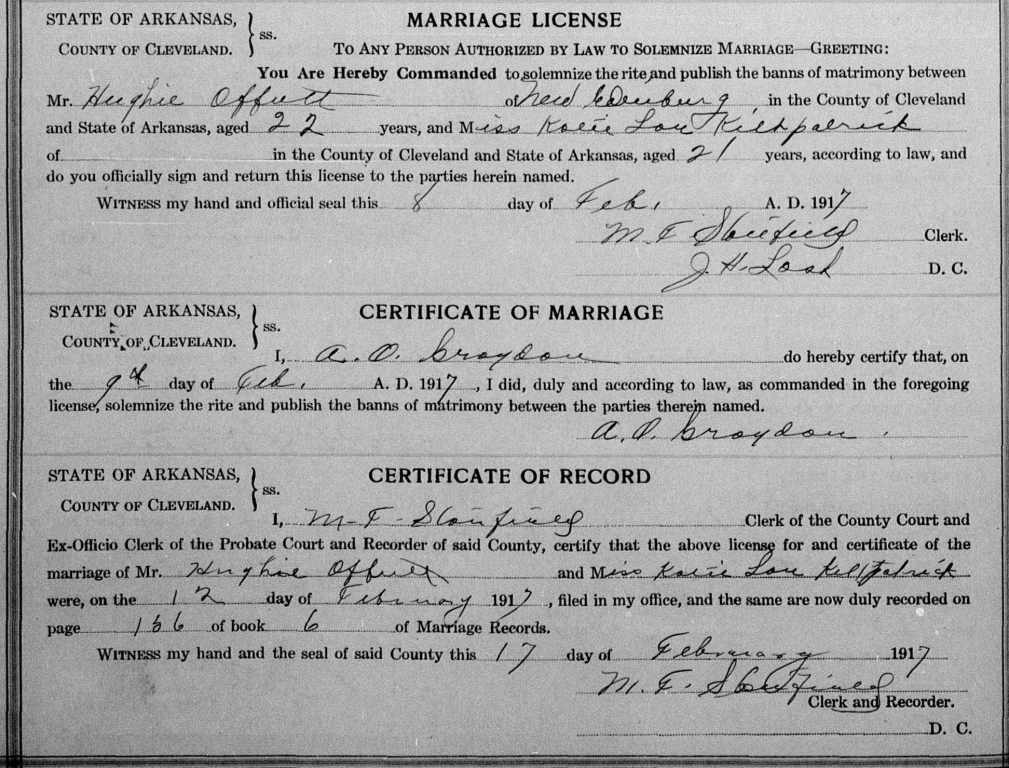 STATE OF ARKANSAS,
COUNTY OF CLEVELAND.
ss.
MARRIAGE LICENSE
TO ANY PERSON AUTHORIZED BY LAW TO SOLEMNIZE MARRIAGE—GREETING:
You Are Hereby Commanded to solemnize the rite and publish the banns of matrimony between
Mr. Hughie Offutt of New Edenburg, in the County of Cleveland
and State of Arkansas, aged 22 years, and Miss Katie Lou Kilkpatrick
of in the County of Cleveland and State of Arkansas, aged 21 years, according to law, and
do you officially sign and return this license to the parties herein named.
WITNESS my hand and official seal this 8 day of Feb. A. D. 1917
M. F. Clerk.
J. H. D. C.
STATE OF ARKANSAS,
COUNTY OF CLEVELAND.
ss.
CERTIFICATE OF MARRIAGE
I, A. O. Graydon do hereby certify that, on
the 9th day of Feb. A. D. 1917, I did, duly and according to law, as commanded in the foregoing
license, solemnize the rite and publish the banns of matrimony between the parties therein named.
A. O. Graydon.
STATE OF ARKANSAS,
COUNTY OF CLEVELAND.
ss.
CERTIFICATE OF RECORD
I, M. F. Clerk of the County Court and
Ex-Officio Clerk of the Probate Court and Recorder of said County, certify that the above license for and certificate of the
marriage of Mr. Hughie Offutt and Miss Katie Lou Killpatrick
were, on the 12 day of February 1917, filed in my office, and the same are now duly recorded on
page of book 6 of Marriage Records.
WITNESS my hand and the seal of said County this 17 day of February 1917
M. F.
Clerk and Recorder.
D. C.